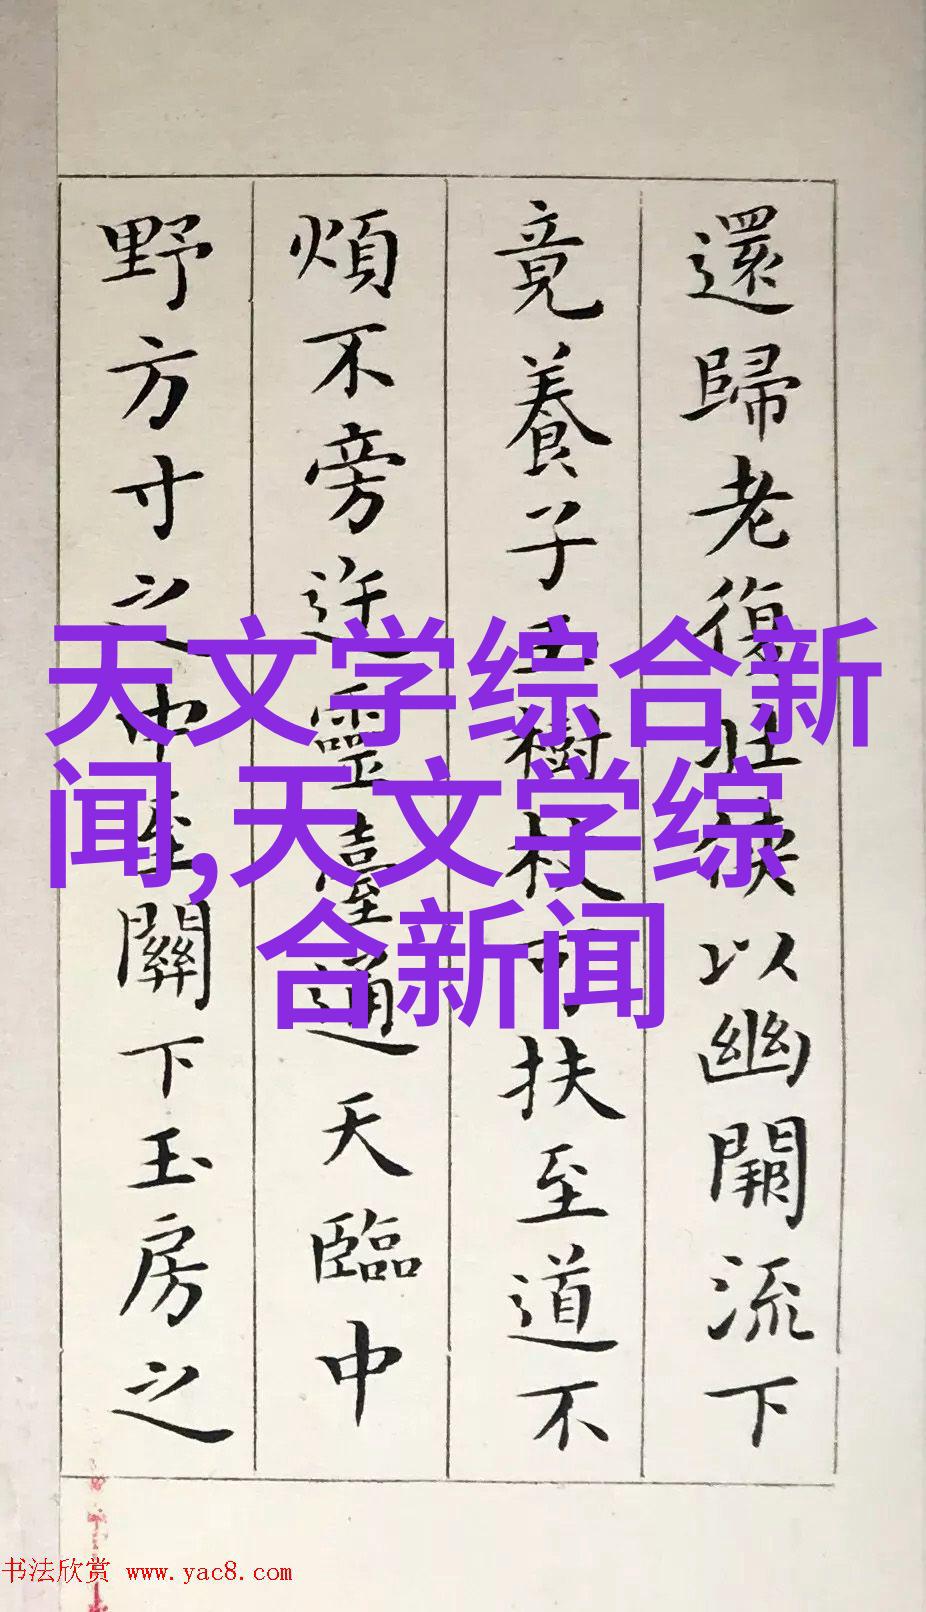 還歸老復壯俠以幽闕流下
竟養子玉樹杖可扶至道不
煩不旁迕靈臺通天臨中
野方寸之中至關下玉房之
天文学综合新
闻,天文学综
合新闻
书法欣赏 www.yac8.com